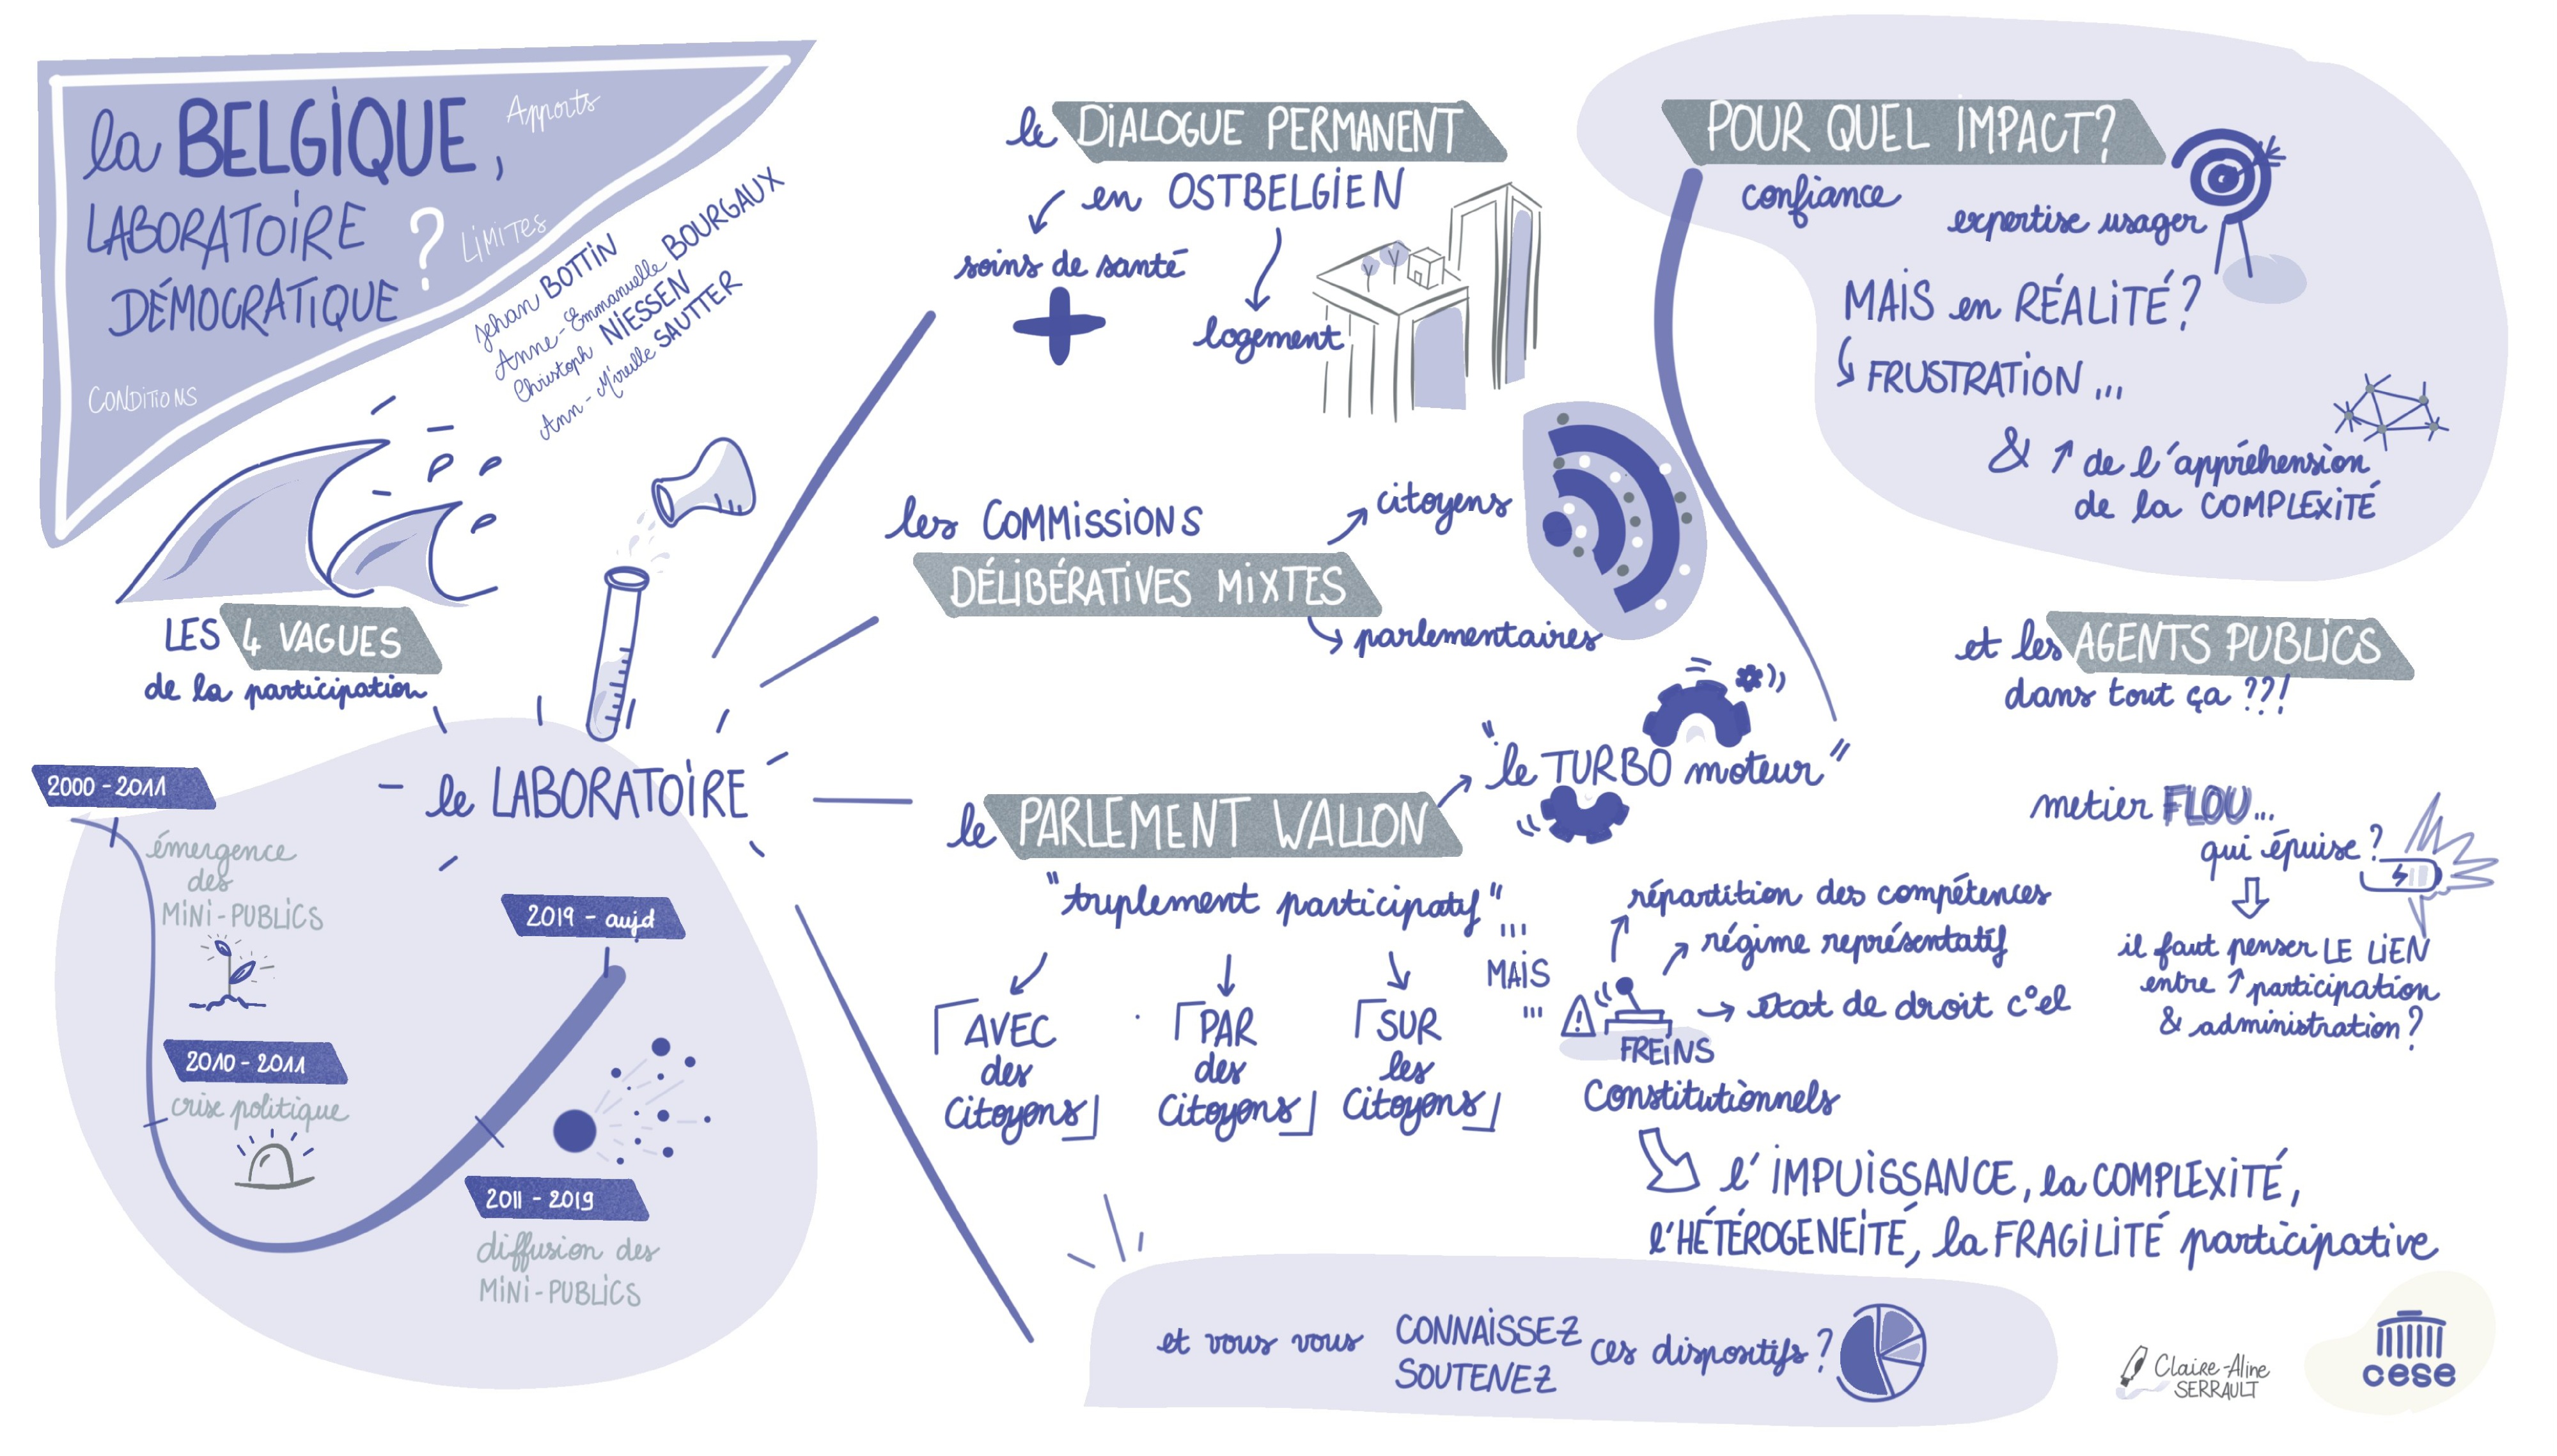 la BELGIQUE,
Apports
LABORATOIRE
DÉMOCRATIQUE
?
LIMITES
CONDITIONS
Jehan BOTTIN
Anne-Emmanuelle BOURGAUX
Christoph NIESSEN
Ann-Mireille SAUTTER
LES 4 VAGUES
de la participation
2000 - 2011
émergence
des
MINI-PUBLICS
2010 - 2011
crise politique
2011 - 2019
diffusion des
MINI-PUBLICS
2019 - aujd
le LABORATOIRE
le DIALOGUE PERMANENT
en OSTBELGIEN
soins de santé
logement
les COMMISSIONS
DÉLIBÉRATIVES MIXTES
citoyens
parlementaires
le PARLEMENT WALLON
"le TURBO moteur"
"triplement participatif"
AVEC
des
citoyens
PAR
des
citoyens
SUR
les
citoyens
...
MAIS
...
répartition des compétences
régime représentatif
état de droit c°el
FREINS
Constitutionnels
l'IMPUISSANCE, la COMPLEXITÉ,
l'HÉTÉROGENEITÉ, la FRAGILITÉ participative
POUR QUEL IMPACT?
confiance
expertise usager
MAIS en RÉALITÉ?
FRUSTRATION ...
& ↗ de l'appréhension
de la COMPLEXITÉ
et les AGENTS PUBLICS
dans tout ça ??!
metier FLOU...
qui épuise?
il faut penser LE LIEN
entre ↗ participation
& administration?
et vous vous CONNAISSEZ
SOUTENEZ
ces dispositifs?
Claire-Aline
SERRAULT
cese